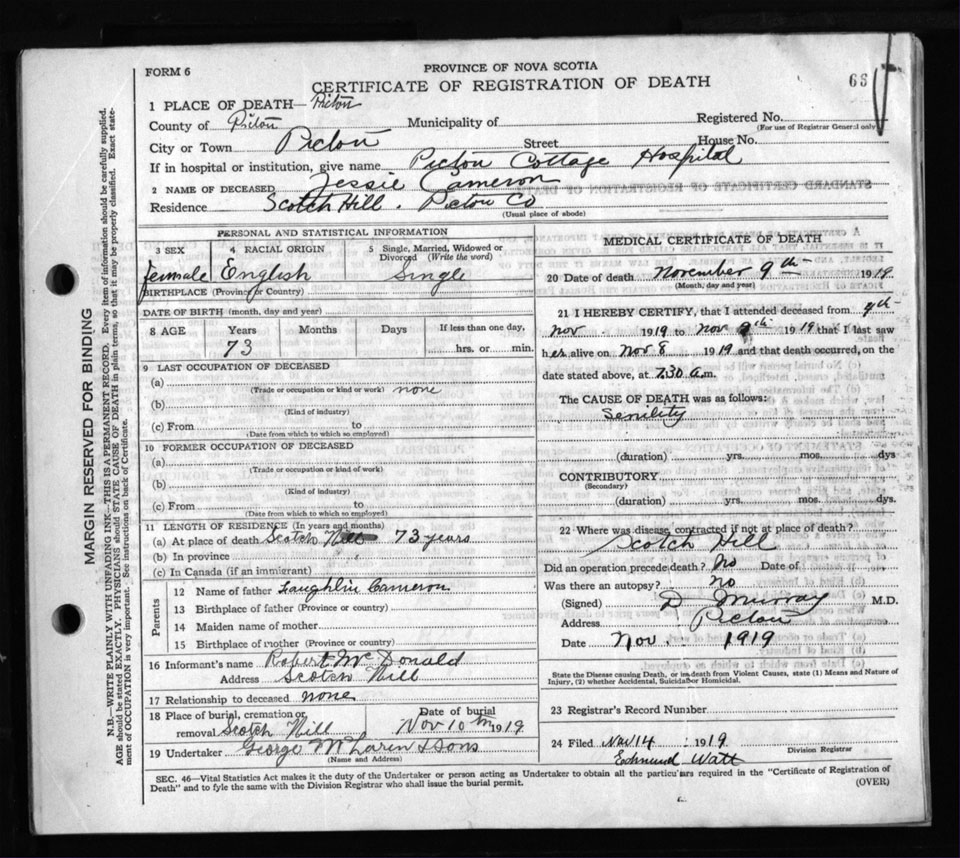 FORM 6
PROVINCE OF NOVA SCOTIA
CERTIFICATE OF REGISTRATION OF DEATH
66
1 PLACE OF DEATH— Pictou
County of Pictou Municipality of Registered No.
(For use of Registrar General only)
City or Town Pictou Street House No.
If in hospital or institution, give name Pictou Cottage Hospital
2 NAME OF DECEASED Jessie Cameron
Residence Scotch Hill. Pictou Co
(Usual place of abode)
PERSONAL AND STATISTICAL INFORMATION
3 SEX 4 RACIAL ORIGIN 5 Single, Married, Widowed or Divorced (Write the word)
female English Single
BIRTHPLACE (Province or Country)
DATE OF BIRTH (month, day and year)
8 AGE Years Months Days If less than one day,
73 hrs. or min.
9 LAST OCCUPATION OF DECEASED
(a) none
(Trade or occupation or kind or work)
(b)
(Kind of industry)
(c) From to
(Date from which to which so employed)
10 FORMER OCCUPATION OF DECEASED
(a)
(Trade or occupation or kind of work)
(b)
(Kind of industry)
(c) From to
(Date from which to which so employed)
11 LENGTH OF RESIDENCE (In years and months)
(a) At place of death Scotch Hill 73 years
(b) In province
(c) In Canada (if an immigrant)
Parents
12 Name of father Laughlin Cameron
13 Birthplace of father (Province or country)
14 Maiden name of mother
15 Birthplace of mother (Province or country)
16 Informant's name Robert McDonald
Address Scotch Hill
17 Relationship to deceased none
18 Place of burial, cremation or removal Scotch Hill Date of burial Nov 10th 1919
19 Undertaker George McLaren & Sons
(Name and Address)
MEDICAL CERTIFICATE OF DEATH
20 Date of death November 9th 1919
(Month, day and year)
21 I HEREBY CERTIFY, that I attended deceased from 4th
Nov. 1919 to Nov 9th 1919 that I last saw
her alive on Nov 8 1919 and that death occurred, on the
date stated above, at 7.30 a.m.
The CAUSE OF DEATH was as follows:
Senility
(duration) yrs. mos. dys
CONTRIBUTORY
(Secondary)
(duration) yrs. mos. dys.
22 Where was disease contracted if not at place of death?
Scotch Hill
Did an operation precede death? No Date of
Was there an autopsy? No
(Signed) D. Murray M.D.
Address Pictou
Date Nov. 1919
State the Disease causing Death, or in deaths from Violent Causes, state (1) Means and Nature of
Injury, (2) whether Accidental, Suicidal or Homicidal.
23 Registrar's Record Number
24 Filed Nov 14 1919
Edmund Watt
Division Registrar
SEC. 46—Vital Statistics Act makes it the duty of the Undertaker or person acting as Undertaker to obtain all the particulars required in the "Certificate of Registration of
Death" and to fyle the same with the Division Registrar who shall issue the burial permit.
(OVER)
MARGIN RESERVED FOR BINDING
N.B.—WRITE PLAINLY WITH UNFADING INK—THIS IS A PERMANENT RECORD. Every item of information should be carefully supplied.
AGE should be stated EXACTLY. PHYSICIANS should STATE CAUSE OF DEATH in plain terms, so that it may be properly classified. Exact state-
ment of OCCUPATION is very important. See instructions on back of Certificate.